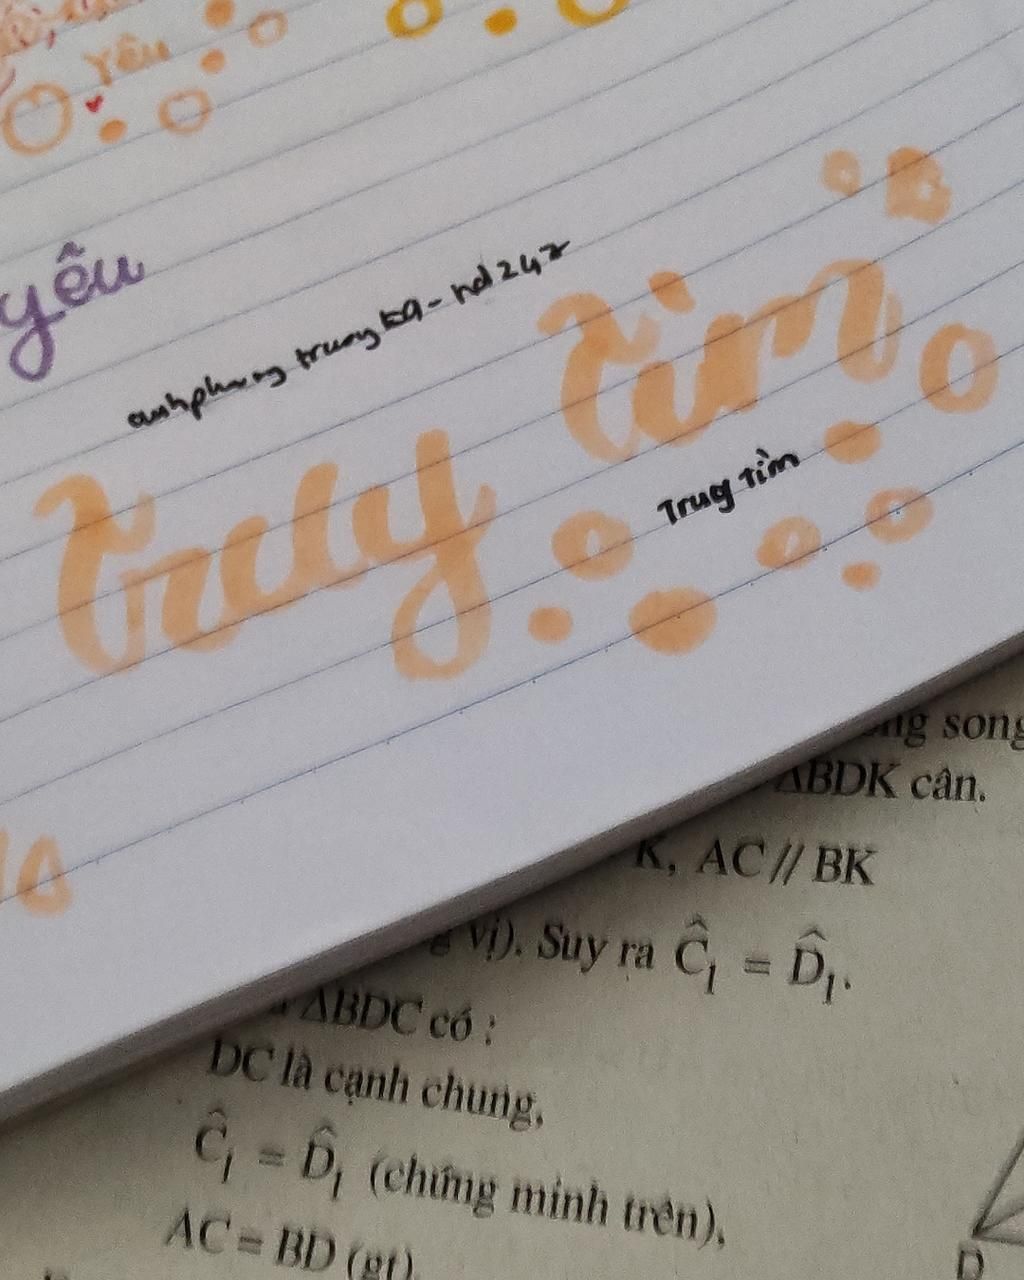 yêu
yêu
anhphuong truongk9-nd247
Truy tìm
Truy tìm
song
ΔBDK cân.
K, AC // BK
vị). Suy ra Ĉ₁ = D̂₁.
ΔBDC có :
DC là cạnh chung,
Ĉ₁ = D̂₁ (chứng minh trên),
AC = BD (gt)
D